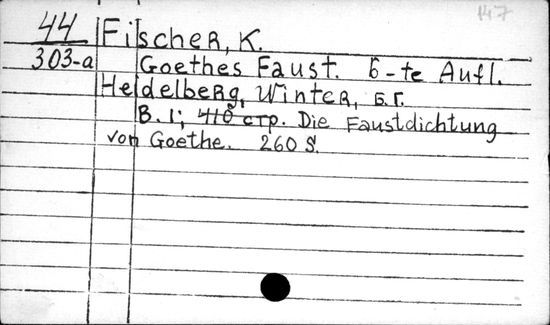 147
44 Fischer, K.
303-a Goethes Faust. 6-te Aufl.
Heidelberg, Winter, б.г.
B. 1; 410 стр. Die Faustdichtung
von Goethe. 260 S.